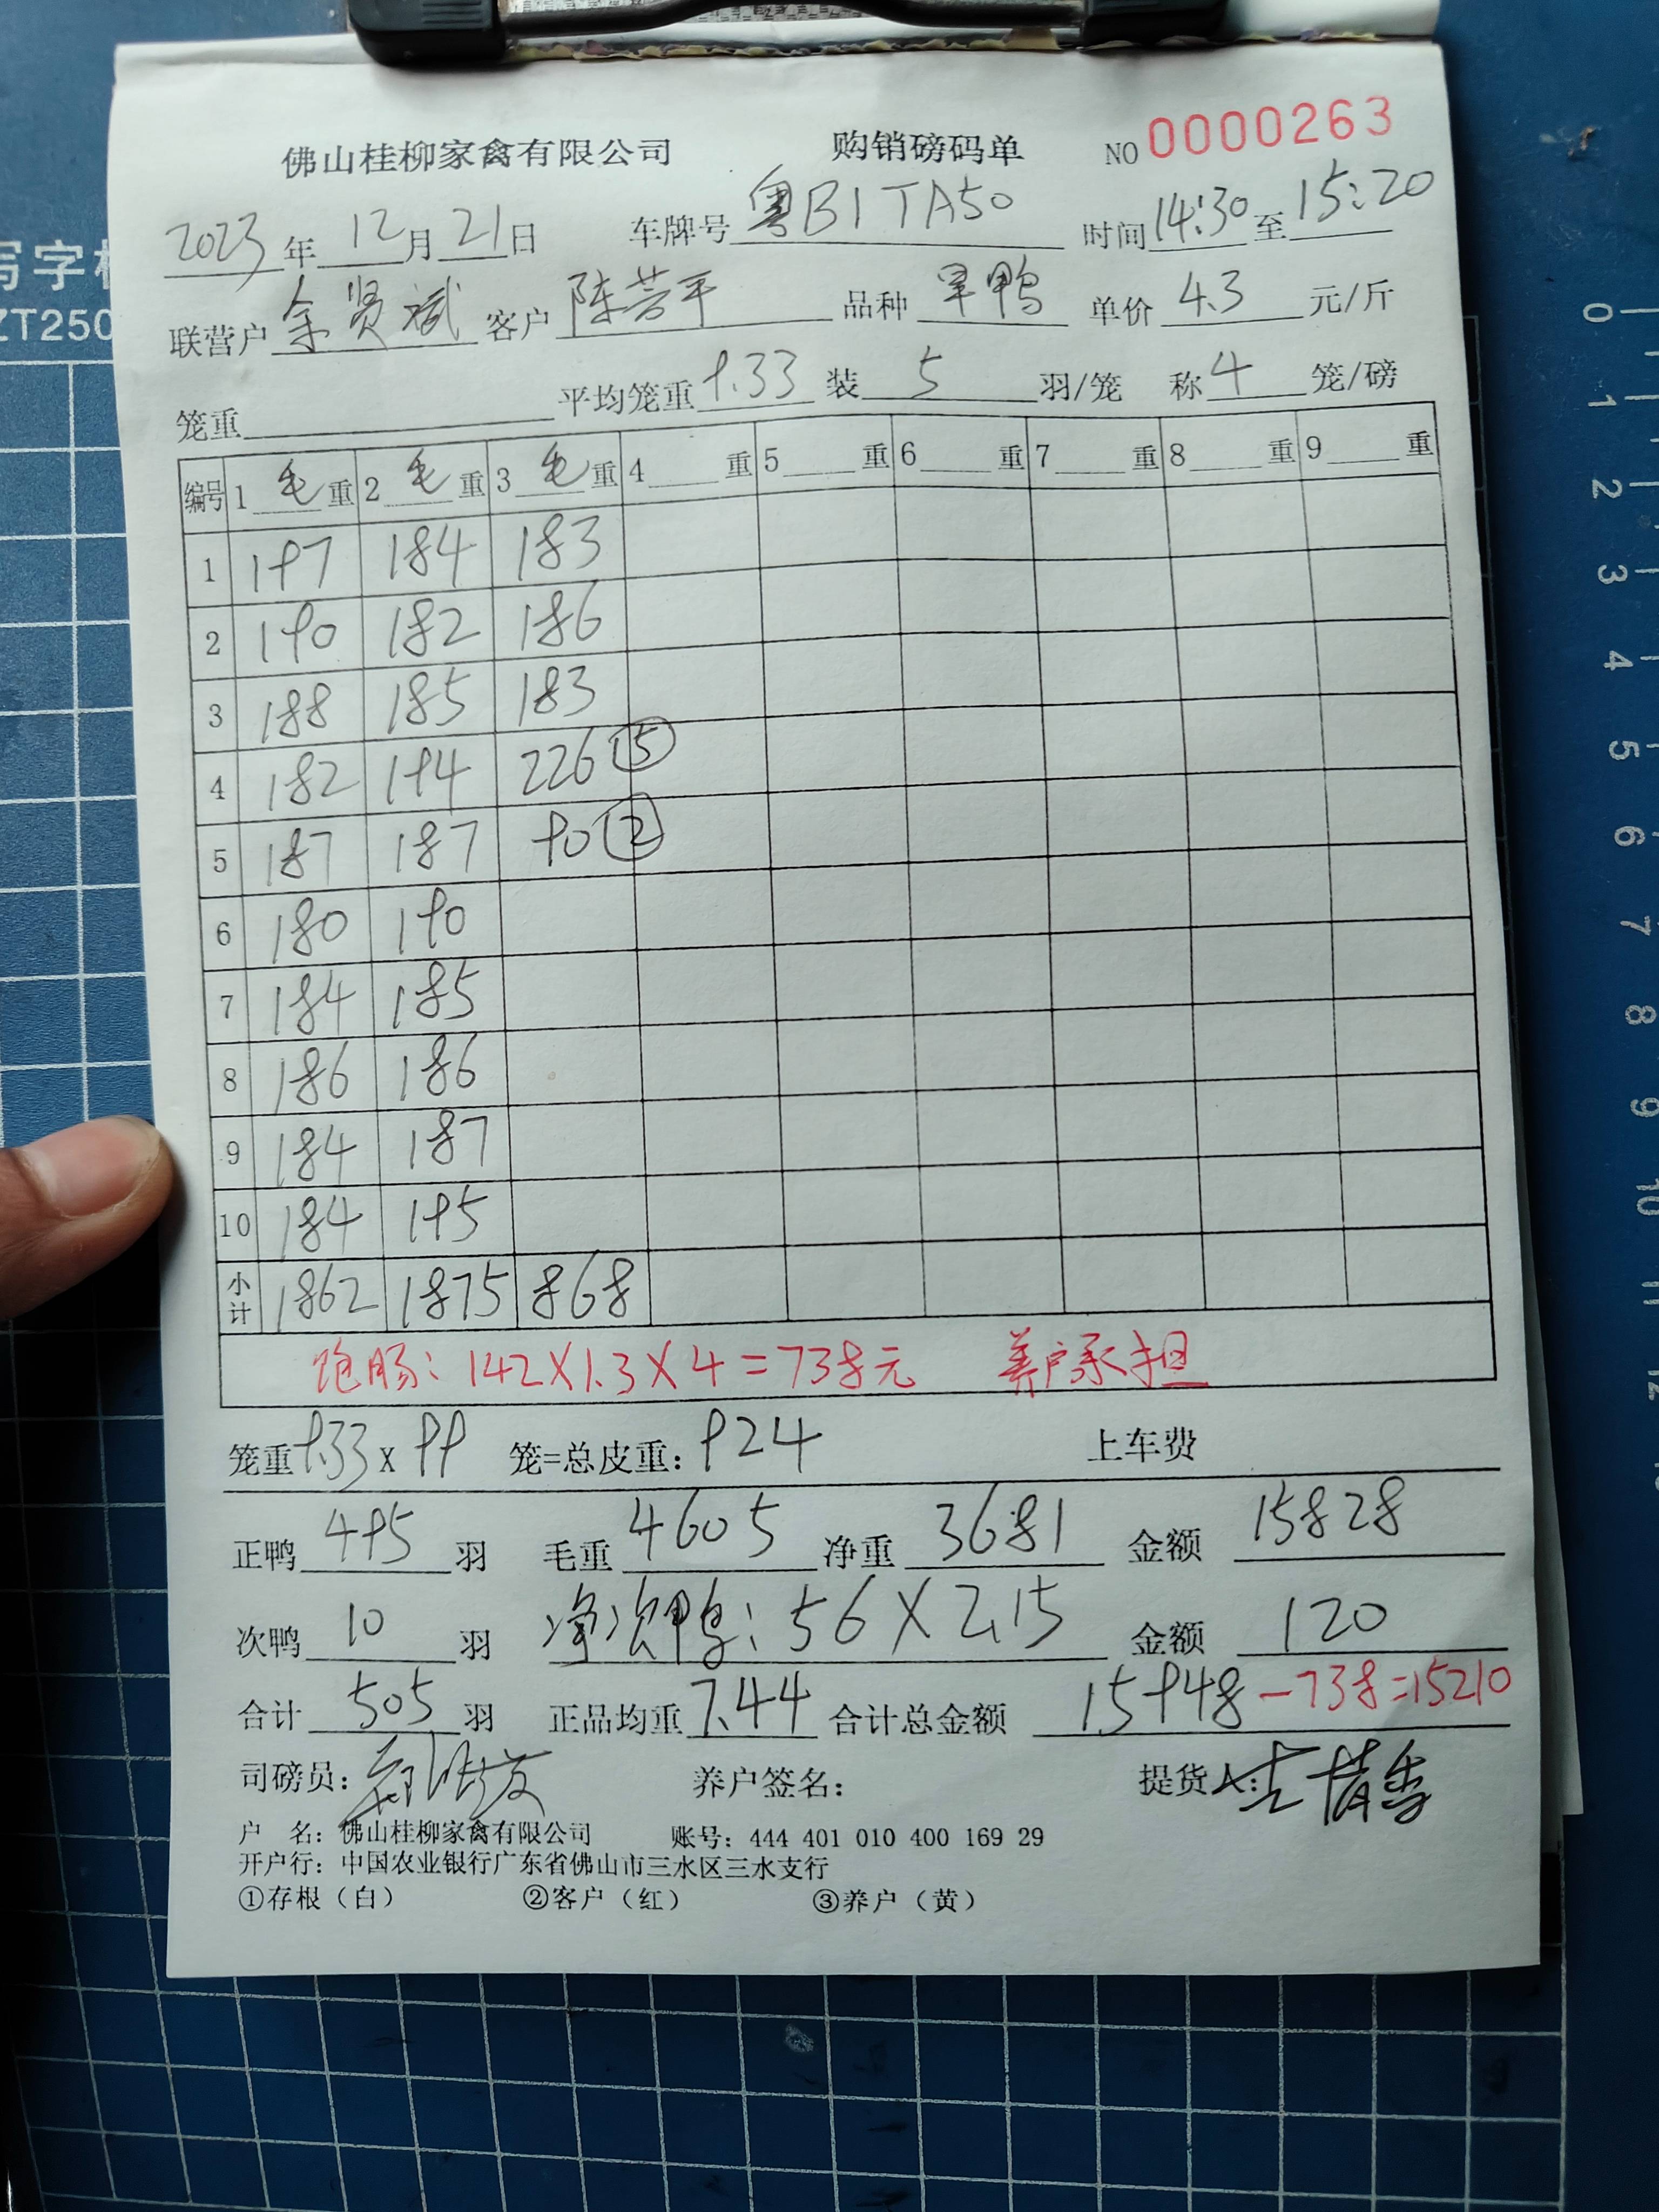 佛山桂柳家禽有限公司 购销磅码单 NO 0000263
2023年12月21日 车牌号 粤B1TA50 时间 14:30 至 15:20
联营户 余贤斌 客户 陈芳平 品种 旱鸭 单价 4.3 元/斤
笼重 平均笼重 9.33 装 5 羽/笼 称 4 笼/磅
编号 1 毛重 2 毛重 3 毛重 4 重 5 重 6 重 7 重 8 重 9 重
1 197 184 183
2 190 182 186
3 188 185 183
4 182 194 226 ⑤
5 187 187 90 ②
6 180 190
7 184 185
8 186 186
9 184 187
10 184 195
小计 1862 1875 868
跑肠: 142X1.3X4=738元 养户承担
笼重 9.33 x 99 笼=总皮重: 924 上车费
正鸭 495 羽 毛重 4605 净重 3681 金额 15828
次鸭 10 羽 净次鸭: 56X2.15 金额 120
合计 505 羽 正品均重 7.44 合计总金额 15948 -738=15210
司磅员: 养户签名: 提货人:
户 名: 佛山桂柳家禽有限公司 账号: 444 401 010 400 169 29
开户行: 中国农业银行广东省佛山市三水区三水支行
①存根（白） ②客户（红） ③养户（黄）
写字
ZT250
0
1
2
3
4
5
6
7
8
9
10
11
12